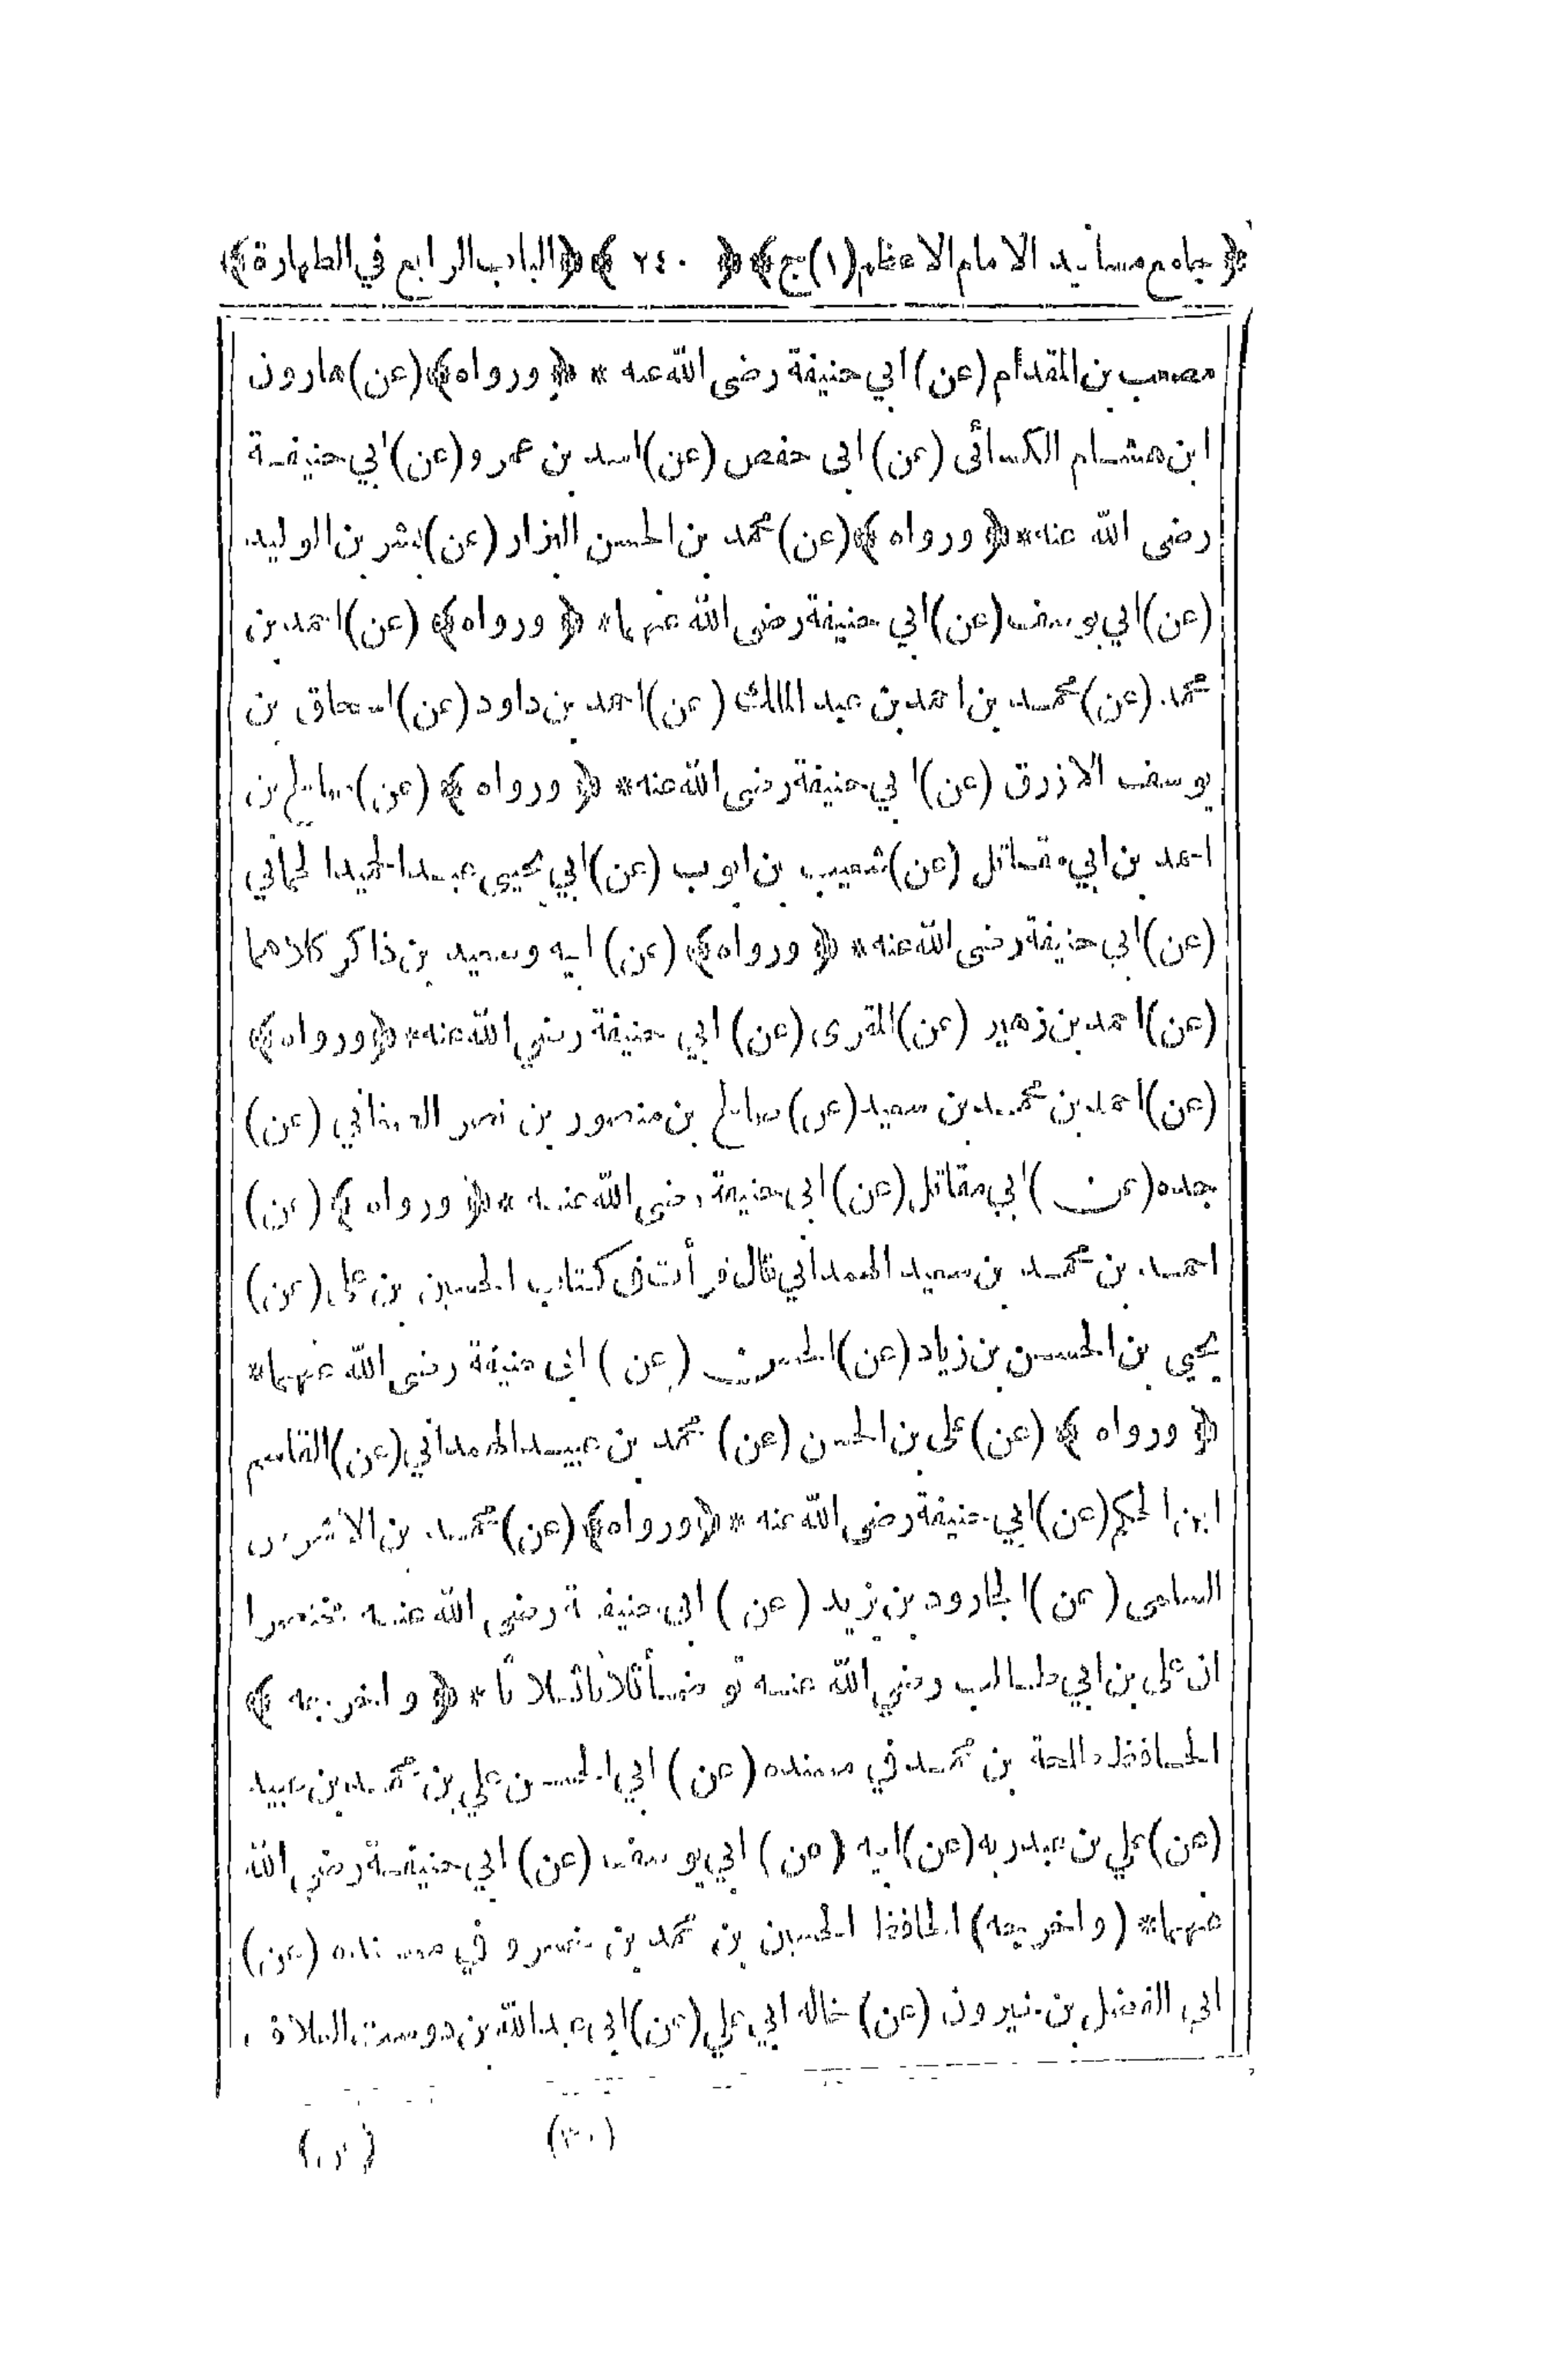 ﴿جامع مسانيد الامام الاعظم(١)ج﴾ ﴿ ٢٤٠ ﴾ ﴿الباب الرابع في الطهارة﴾
مصعب بن المقدام (عن) ابي حنيفة رضى الله عنه * ﴿ ورواه﴾ (عن) هارون
ابن هشام الكسائى (عن) ابى حفص (عن) اسد بن عمرو (عن) ابي حنيفة
رضى الله عنه * ﴿ ورواه ﴾ (عن) محمد بن الحسن البزار (عن) بشر بن الوليد
(عن) ابي يوسف (عن) ابي حنيفة رضى الله عنهما * ﴿ ورواه ﴾ (عن) احمد بن
محمد (عن) محمد بن احمد بن عبد الملك (عن) احمد بن داود (عن) اسحاق بن
يوسف الازرق (عن) ابي حنيفة رضى الله عنه * ﴿ ورواه ﴾ (عن) صالح بن
احمد بن ابي مقاتل (عن) شعيب بن ايوب (عن) ابي يحيى عبد الحميد الحماني
(عن) ابي حنيفة رضى الله عنه * ﴿ ورواه﴾ (عن) ابيه وسعيد بن ذاكر كلاهما
(عن) احمد بن زهير (عن) المقرى (عن) ابي حنيفة رضي الله عنه * ﴿ورواه﴾
(عن) احمد بن محمد بن سعيد (عن) صالح بن منصور بن نصر الصغاني (عن)
جده (عن) ابي مقاتل (عن) ابي حنيفة رضى الله عنه * ﴿ ورواه ﴾ (عن)
احمد بن محمد بن سعيد الهمداني قال قرأت فى كتاب الحسين بن على (عن)
يحيى بن الحسن بن زياد (عن) الحسن (عن) ابى حنيفة رضى الله عنهما *
﴿ ورواه ﴾ (عن) على بن الحسن (عن) محمد بن عبيد الهمداني (عن) القاسم
ابن الحكم (عن) ابي حنيفة رضى الله عنه * ﴿ورواه﴾ (عن) محمد بن الاشرس
السلمى (عن) الجارود بن يزيد (عن) ابى حنيفة رضي الله عنه مختصرا
ان على بن ابي طالب رضي الله عنه توضأ ثلاثا ثلاثا * ﴿ واخرجه ﴾
الحافظ طلحة بن محمد في مسنده (عن) ابي الحسن علي بن محمد بن عبيد
(عن) علي بن عبد ربه (عن) ابيه (عن) ابي يوسف (عن) ابي حنيفة رضي الله
عنهما * (واخرجه) الحافظ الحسين بن محمد بن خسرو في مسنده (عن)
ابى الفضل بن خيرون (عن) خاله ابي علي (عن) ابى عبد الله بن دوست العلاف
(٣٠)